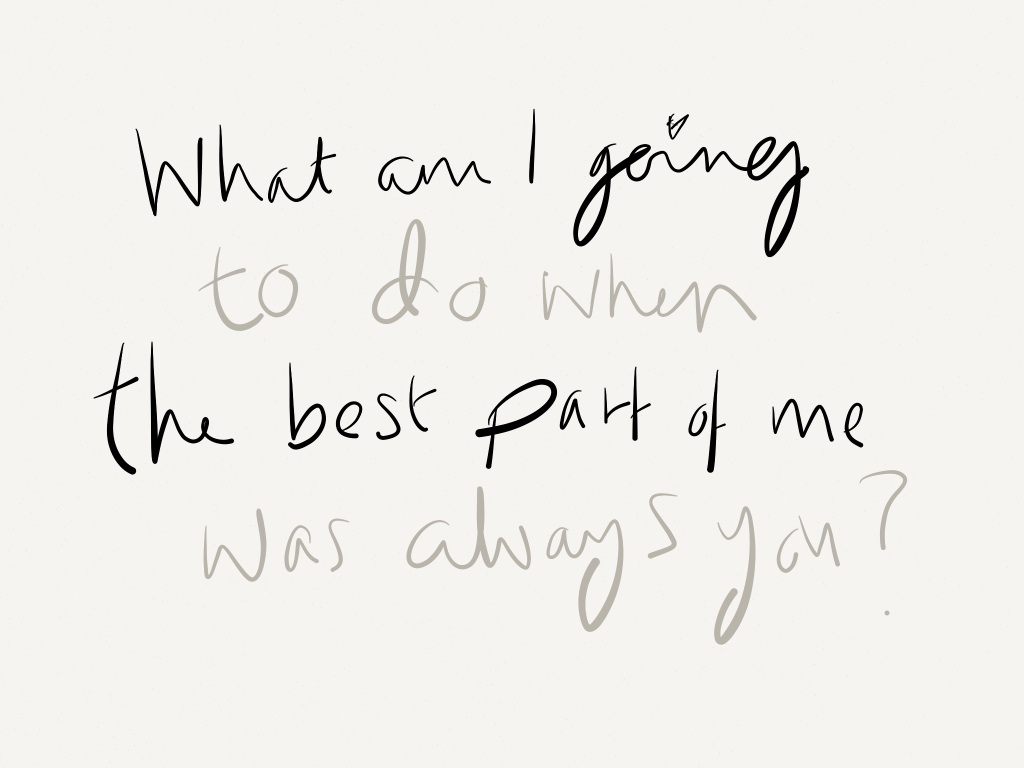 What am I going
to do when
the best part of me
was always you?